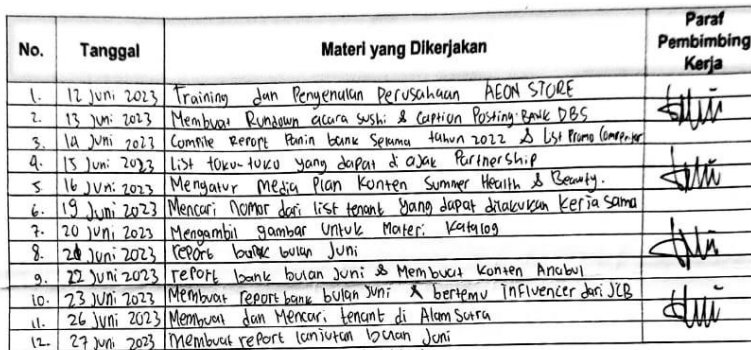 No. Tanggal Materi yang Dikerjakan Paraf Pembimbing Kerja
1. 12 Juni 2023 Training dan Pengenalan Perusahaan AEON STORE
2. 13 Juni 2023 Membuat Rundown acara sushi & Caption Posting Bank DBS
3. 14 Juni 2023 Compile Report Panin bank Selama tahun 2022 & List Promo
4. 15 Juni 2023 List toko-toko yang dapat di ajak Partnership
5 16 Juni 2023 Mengatur Media Plan Konten Summer Health & Beauty.
6. 19 Juni 2023 Mencari Nomor dari list tenant yang dapat dilakukan kerja sama
7. 20 Juni 2023 Mengambil gambar Untuk Materi Katalog
8. 21 Juni 2023 report bank bulan Juni
9. 22 Juni 2023 report bank bulan Juni & Membuat Konten Anabul
10. 23 Juni 2023 Membuat report bank bulan Juni & bertemu Influencer dari JCB
11. 26 Juni 2023 Membuat dan Mencari tenant di Alam Sutra
12. 27 Juni 2023 Membuat report lanjutan bulan Juni